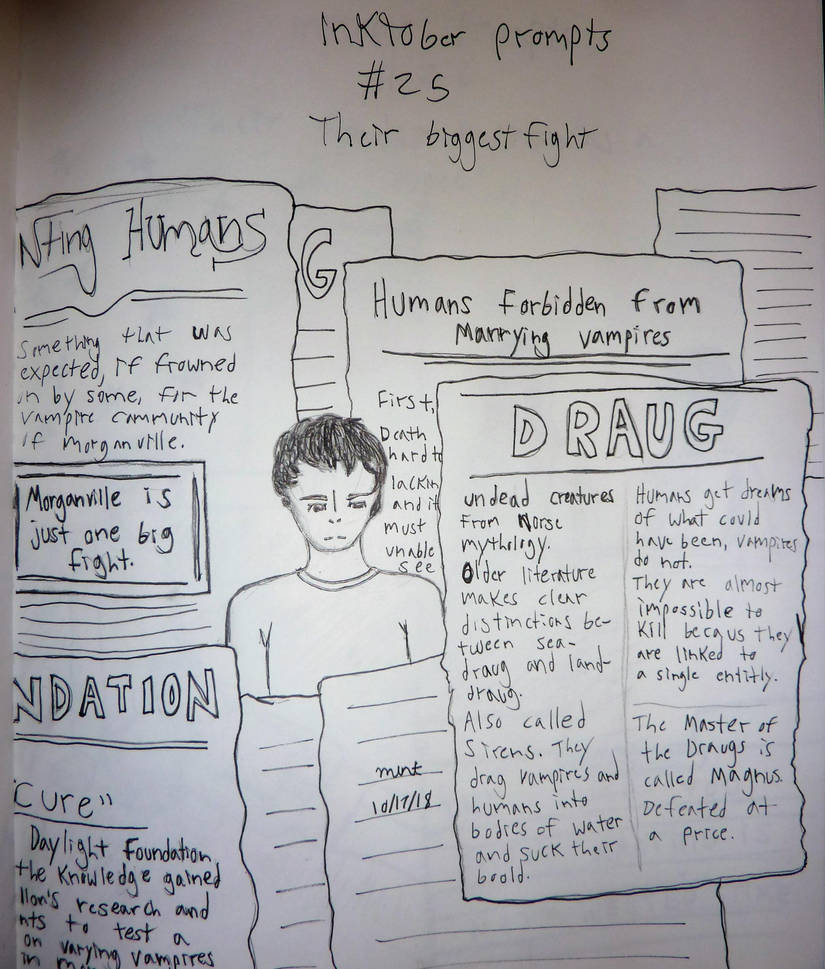 Inktober prompts
#25
Their biggest fight
nting Humans
Something that was
expected, if frowned
on by some, for the
vampire community
of Morganville.
Morganville is
just one big
fight.
NDATION
Cure"
Daylight Foundation
the knowledge gained
llon's research and
nts to test a
on varying vampires
G
Humans Forbidden from
Marrying vampires
First,
Death
hard to
lackin
and it
must
unable
see
mint
10/17/18
DRAUG
undead creatures
from Norse
mythology.
Older literature
makes clear
distinctions be-
tween sea-
draug and land-
draug.
Also called
Sirens. They
drag vampires and
humans into
bodies of water
and suck their
boold.
Humans get dreams
of what could
have been, vampires
do not.
They are almost
impossible to
kill becaus they
are linked to
a single entitly.
The Master of
the Draugs is
called Magnus.
Defeated at
a price.